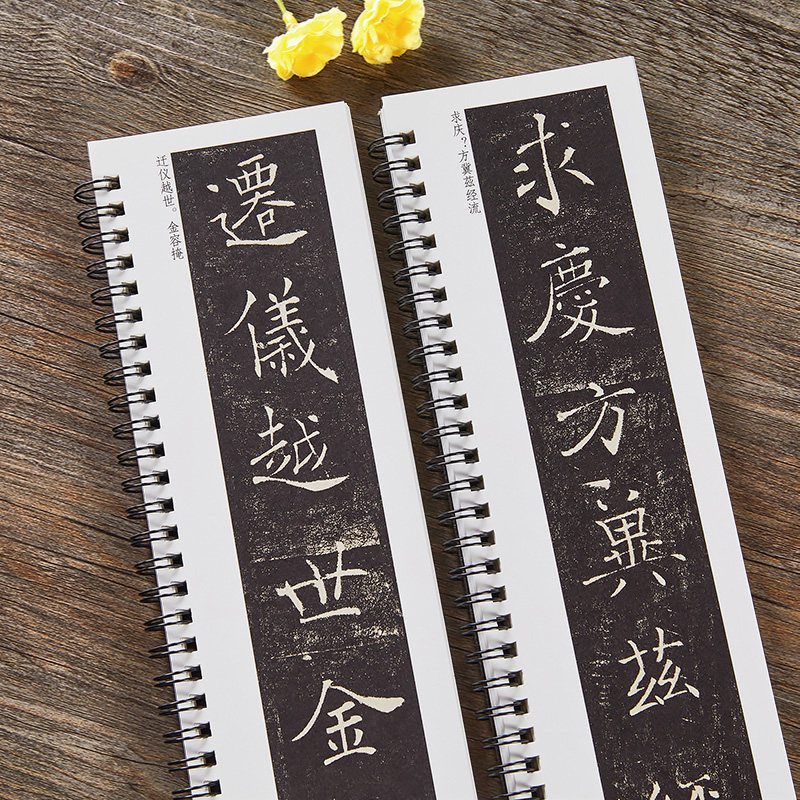 迁仪越世。 金容掩
遷儀越世金
求庆？方冀兹经流
求慶方冀茲